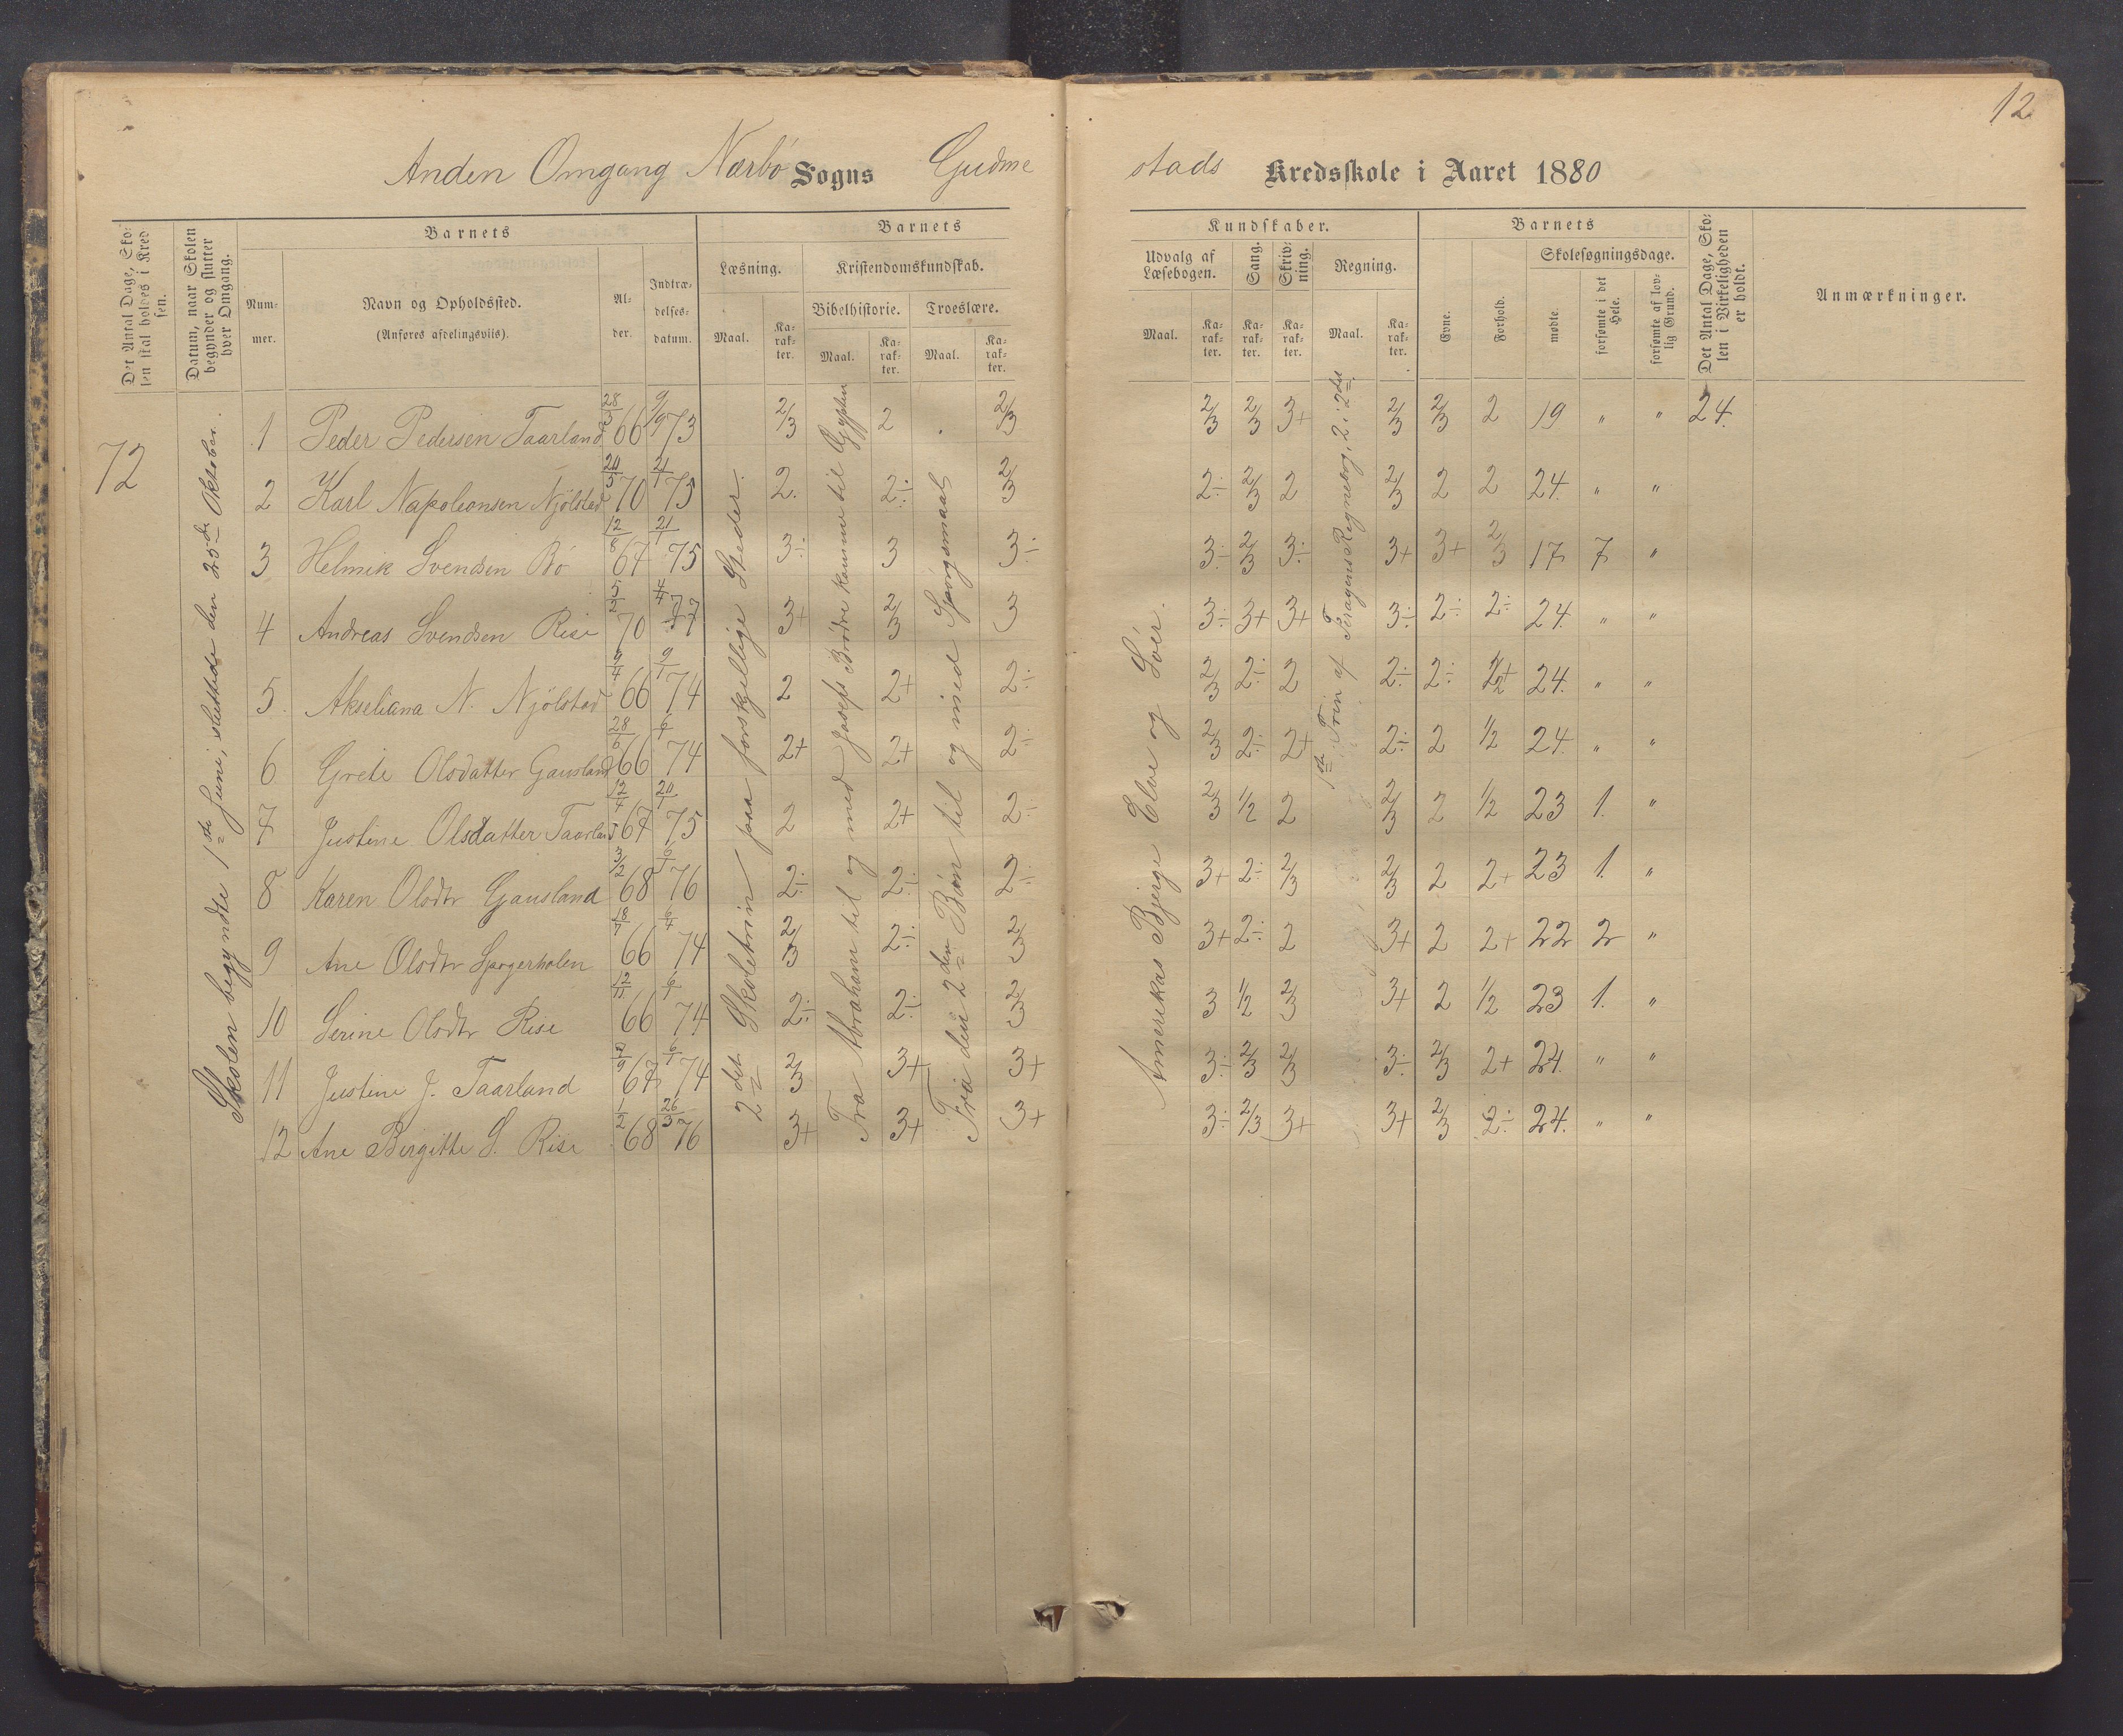 12
Anden Omgang Nærbö Sogns Gudmestads Kredsskole i Aaret 1880
Det Antal Dage, Skolen skal holdes i Kredsen.
Datum, naar Skolen begynder og slutter hver Omgang.
Barnets
Nummer.
Navn og Opholdssted.
(Anføres afdelingsviis).
Alder.
Indtrædelsesdatum.
Barnets Kundskaber.
Læsning.
Maal.
Karakter.
Kristendomskundskab.
Bibelhistorie.
Maal.
Karakter.
Troeslære.
Maal.
Karakter.
Udvalg af Læsebogen.
Maal.
Karakter.
Sang.
Karakter.
Skrivning.
Karakter.
Regning.
Maal.
Karakter.
Barnets
Evne.
Forhold.
Skolesøgningsdage.
mødte.
forsømte i det Hele.
forsømte af lovlig Grund.
Det Antal Dage, Skolen i Virkeligheden er holdt.
Anmærkninger.
72
Skolen begyndte 1ste Juni, sluttede den 25de Oktober.
2det Skoletrin paa forskjellige Steder.
Fra Abraham til og med Josefs Brødre komme til Ægypten
Fra den 2den Bøn til og med Spørgsmaal
Amerikas Bjerge Elve og Söer.
1ste Trin af Regnebog, 2 i 2det
1 Peder Pedersen Taarland 28/3 66 9/9 73 2/3 2 2/3 2/3 2/3 3+ 2/3 2/3 2 19 " " 24.
2 Karl Napoleonsen Njölstad 20/5 70 21/1 75 2. 2÷ 2/3 2÷ 2/3 2 2/3 2 2 24. " "
3 Helmik Svendsen Bö 12/8 67 21/1 75 3÷ 3 3÷ 3÷ 2/3 3÷ 3+ 3+ 2/3 17 7 "
4 Andreas Svendsen Rise 5/2 70 4/4 77 3+ 2/3 3 3÷ 3+ 3+ 3÷ 2÷ 2÷ 24. " "
5 Akseliana N. Njölstad 66 9/1 74 2 2+ 2÷ 2/3 2÷ 2 2÷ 2÷ 24. " "
6 Grete Olsdatter Gausland 28/6 66 6/1 74 2+ 2+ 2÷ 2/3 2÷ 2+ 2÷ 2 1/2 24. " "
7 Justine Olsdatter Taarland 12/4 67 20/1 75 2 2+ 2÷ 2/3 1/2 2 2/3 2 1/2 23 1. "
8 Karen Olsdtr Gausland 3/2 68 6/1 76 2÷ 2÷ 2÷ 3+ 2÷ 2/3 2/3 2 2+ 23 1. "
9 Ane Olsdtr 18/7 66 6/4 74 2/3 2÷ 2/3 3+ 2÷ 2 3+ 2 2+ 22 2 "
10 Serine Olsdtr Rise 12/11 66 6/1 74 2÷ 2÷ 2/3 3 1/2 2/3 3+ 2 1/2 23 1. "
11 Justine J. Taarland 67 6/1 74 2/3 3+ 3+ 3÷ 2/3 2/3 3÷ 2/3 2+ 24. " "
12 Ane Birgitte S. Rise 1/2 68 26/3 76 3+ 3+ 3+ 3÷ 2/3 3+ 3+ 2/3 2÷ 24. " "